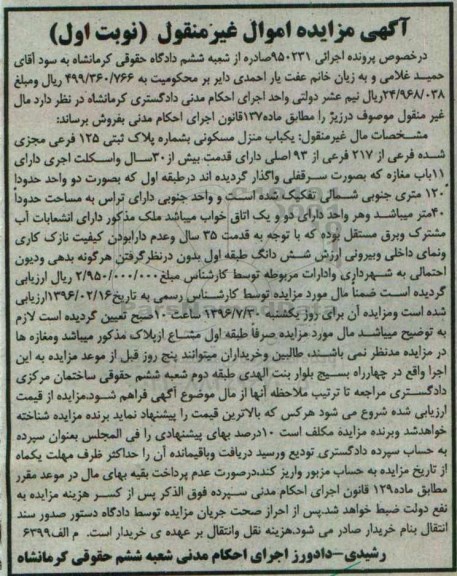 آگهی مزایده اموال غیرمنقول (نوبت اول)
درخصوص پرونده اجرائی ۹۵۰۲۳۱صادره از شعبه ششم دادگاه حقوقی کرمانشاه به سود آقای
حمید غلامی و به زیان خانم عفت یار احمدی دایر بر محکومیت به ۴۹۹/۳۶۰/۷۶۶ ریال ومبلغ
۲۴/۹۶۸/۰۳۸ریال نیم عشر دولتی واحد اجرای احکام مدنی دادگستری کرمانشاه در نظر دارد مال
غیر منقول موصوف درزیژ را مطابق ماده۱۳۷قانون اجرای احکام مدنی بفروش برساند:
مشخصات مال غیرمنقول: یکباب منزل مسکونی بشماره پلاک ثبتی ۱۲۵ فرعی مجزی
شده فرعی از ۲۱۷ فرعی از ۹۳ اصلی دارای قدمت بیش از۳۰سال واسکلت اجری دارای
۱۱باب مغازه که بصورت سرقفلی واگذار گردیده اند درطبقه اول که بصورت دو واحد حدودا
۱۲۰ متری جنوبی شمالی تفکیک شده است و واحد جنوبی دارای تراس به مساحت حدوداً
۴۰متر میباشد وهر واحد دارای دو و یک اتاق خواب میباشد ملک مذکور دارای انشعابات آب
مشترک وبرق مستقل بوده که با توجه به قدمت ۳۵ سال وعدم دارابودن کیفیت نازک کاری
ونمای داخلی وبیرونی ارزش شش دانگ طبقه اول بدون درنظرگرفتن هرگونه بدهی ودیون
احتمالی به شهرداری وادارات مربوطه توسط کارشناس مبلغ۲/۹۵۰/۰۰۰/۰۰۰ ریال ارزیابی
گردیده است ضمناً مال مورد مزایده توسط کارشناس رسمی به تاریخ۱۳۹۶/۰۲/۱۶ارزیابی
شده است ومزایده آن برای روز یکشنبه ۱۳۹۶/۷/۳۰ ساعت ۱۰صبح تعیین گردیده است لازم
به توضیح میباشد مال مورد مزایده صرفاً طبقه اول مشاع ازپلاک مذکور میباشد ومغازه ها
در مزایده مدنظر نمی باشند، طالبین وخریداران میتوانند پنج روز قبل از موعد مزایده به این
اجرا واقع در چهارراه بسیج بلوار بنت الهدی طبقه دوم شعبه ششم حقوقی ساختمان مرکزی
دادگستری مراجعه تا ترتیب ملاحظه آنها از مال موضوع آگهی فراهم شود.مزایده از قیمت
ارزیابی شده شروع می شود هرکس که بالاترین قیمت را پیشنهاد نماید برنده مزایده شناخته
خواهدشد وبرنده مزایده مکلف است ۱۰درصد بهای پیشنهادی را فی المجلس بعنوان سپرده
به حساب سپرده دادگستری تودیع ورسید دریافت وباقیمانده آن را حداکثر ظرف مهلت یکماه
از تاریخ مزایده به حساب مزبور واریز کند،درصورت عدم پرداخت بقیه بهای مال در موعد مقرر
مطابق ماده۱۲۹ قانون اجرای احکام مدنی سپرده فوق الذکر پس از کسر هزینه مزایده به
نفع دولت ضبط خواهد شد.پس از احراز صحت جریان مزایده توسط دادگاه دستور صدور سند
انتقال بنام خریدار صادر می شود.هزینه نقل وانتقال بر عهده ی خریدار است. م الف۶۳۹۹
رشیدی-دادورز اجرای احکام مدنی شعبه ششم حقوقی کرمانشاه